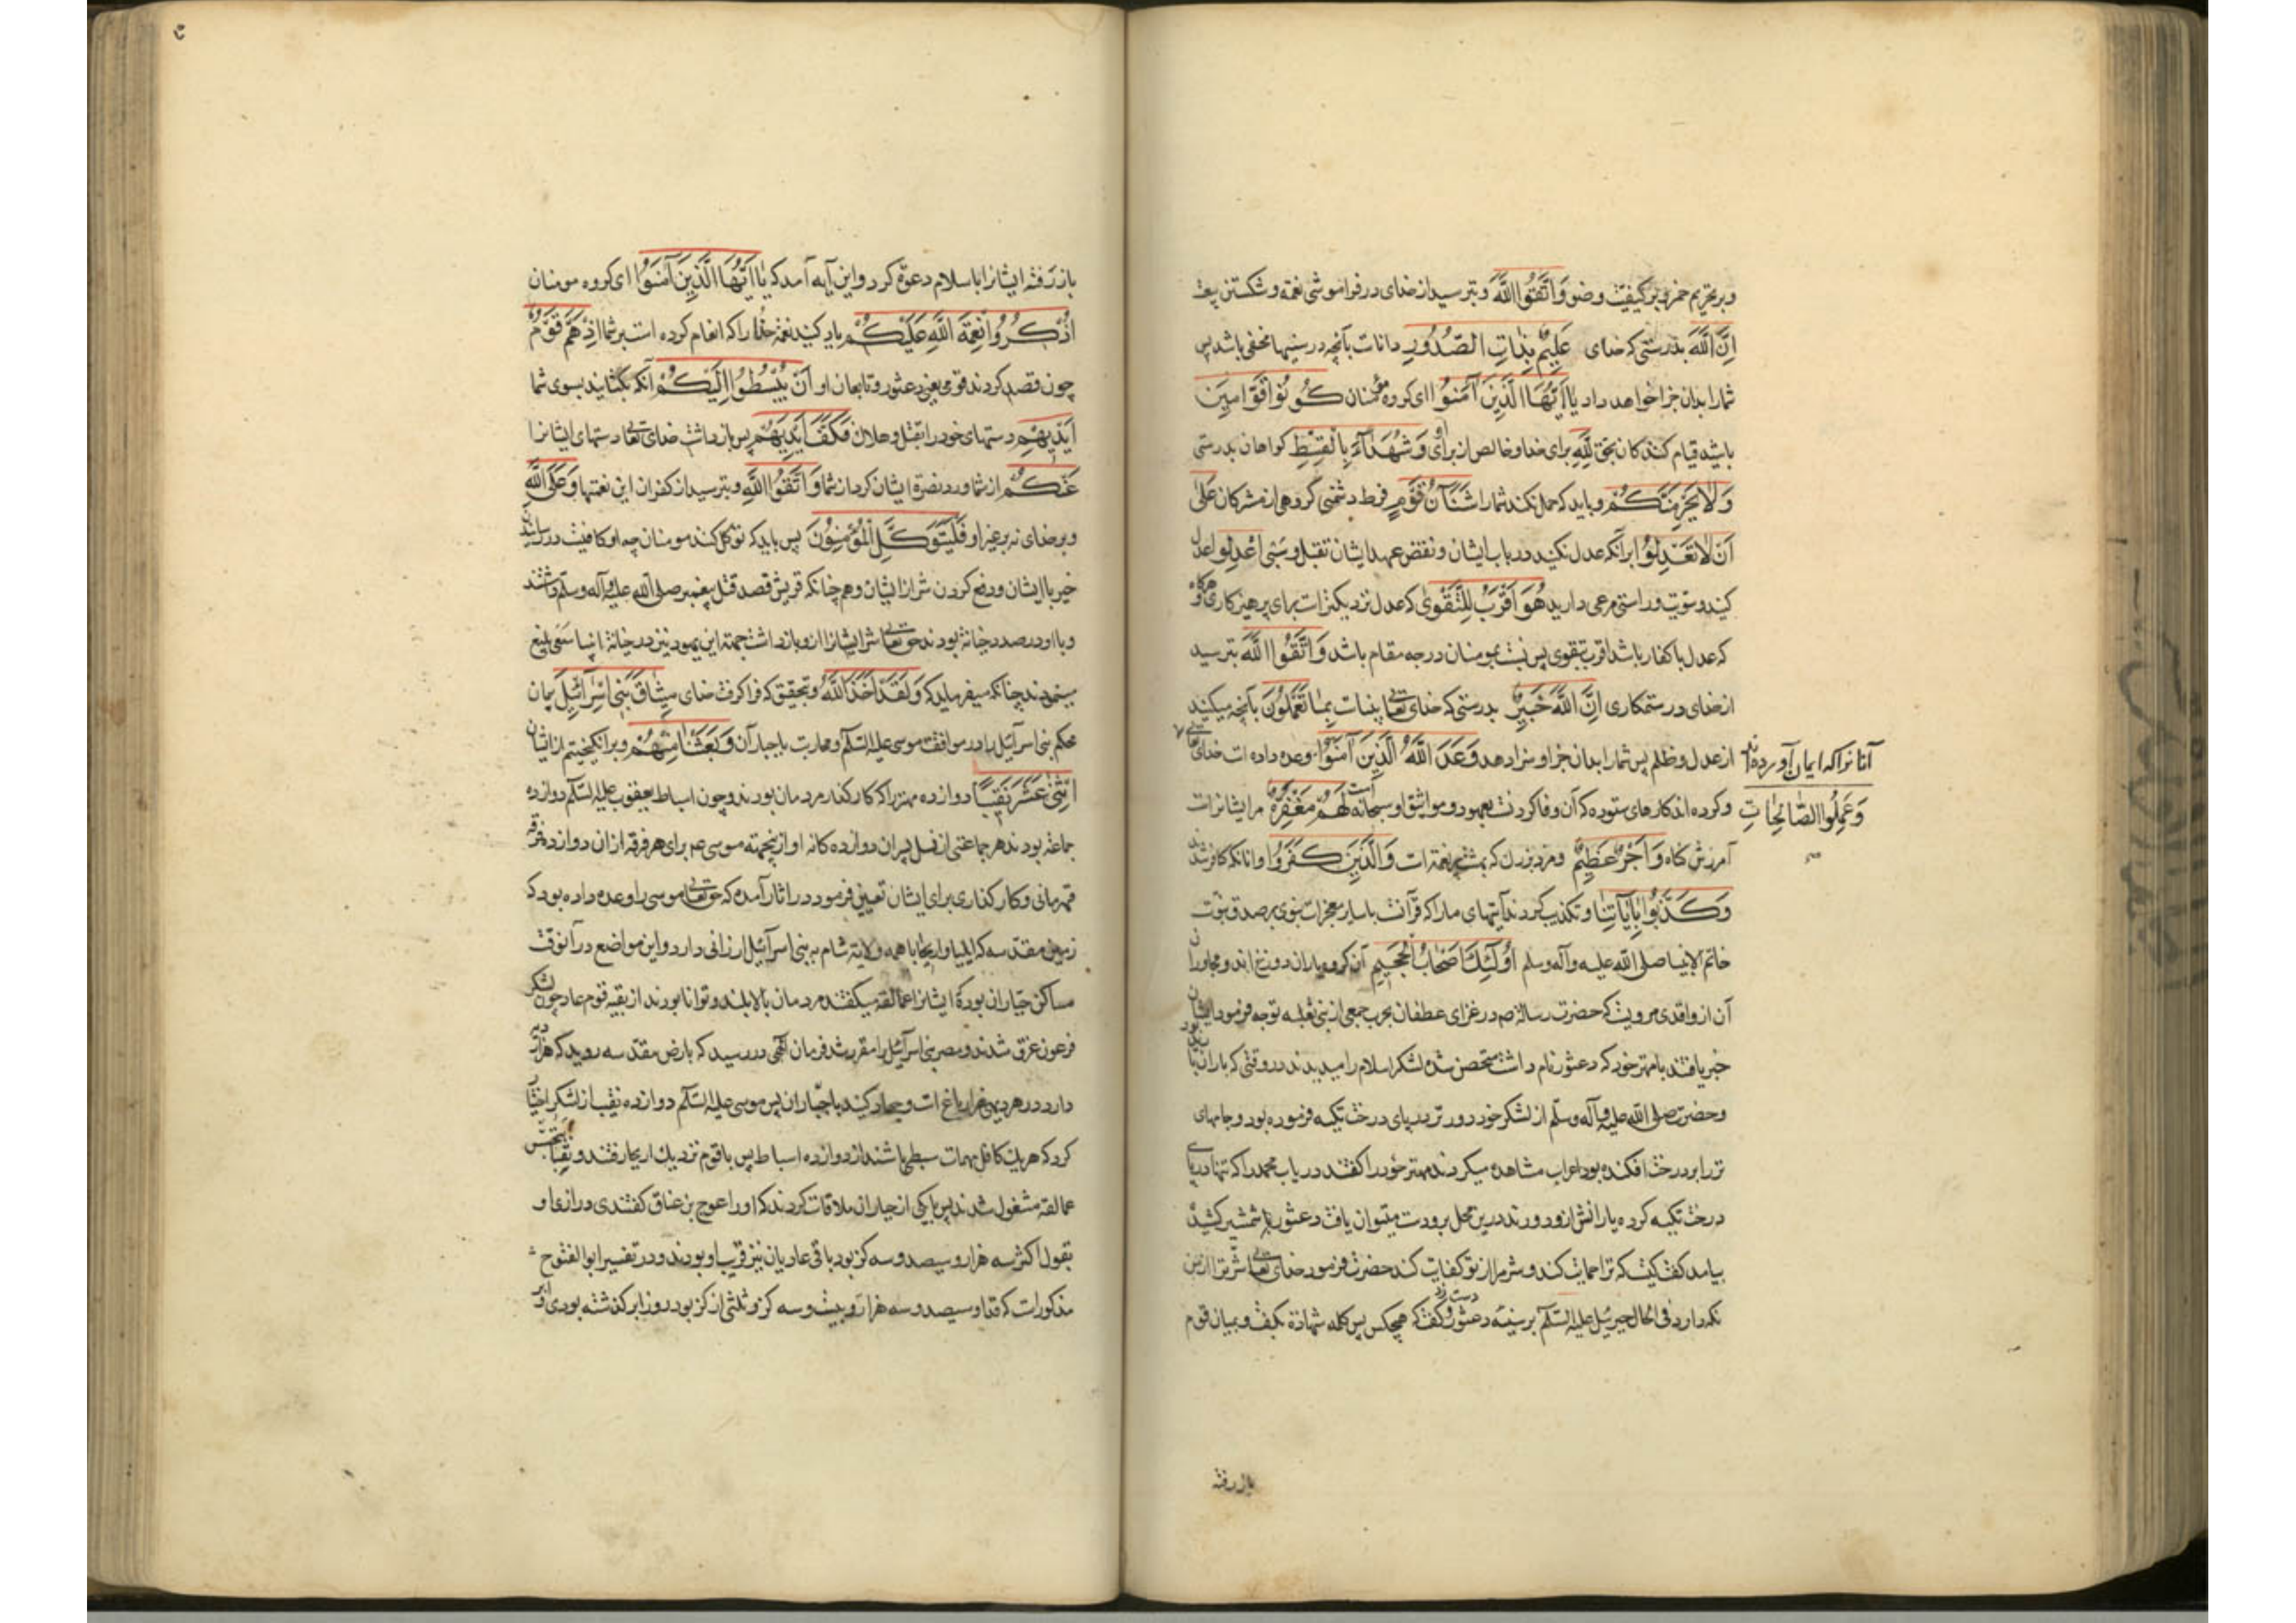 و بر تحریم خمر و بر کیفیت وضو وَاتَّقُوا اللَّهَ و بترسید از خدای در فراموشی نعمة و شکستن
اِنَّ اللَّهَ بدرستی که خدای عَلِیمٌ بِذَاتِ الصُّدُورِ داناست بآنچه در سینها مخفی باشد پس
شما را بدان جزا خواهد داد یَا اَیُّهَا الَّذِینَ آمَنُوا ای کروه مؤمنان کُونُوا قَوَّامِینَ
باشید قیام کنندکان بحق لِلَّهِ برای خدا و خالص از برای او وَ شُهَدَآءَ بِالْقِسْطِ کواهان بدرستی
وَلَا یَجْرِمَنَّکُمْ و باید که حمل نکند شما را شَنَآنُ قَوْمٍ فرط دشمنی کروهی از مشرکان عَلَی
اَنْ لَا تَعْدِلُوا برانکه عدل نکنید در باب ایشان و نقض عهد ایشان بقتل و سَبی اعْدِلُوا عدل
کنید و سویت و راستی مرعی دارید هُوَ اَقْرَبُ لِلتَّقْوَی که عدل نزدیکترست برای پرهیزکاری و هرکاه
که عدل با کفار باشد اقرب بتقوی پس نسبت بمومنان در چه مقام باشد وَاتَّقُوا اللَّهَ بترسید
از خدای در ستمکاری اِنَّ اللَّهَ خَبِیرٌ بدرستی که خدای تعالی بیناست بِمَا تَعْمَلُونَ بآنچه میکنید
از عدل و ظلم پس شما را بدان جزا و سزا دهد وَعَدَ اللَّهُ الَّذِینَ آمَنُوا وعده داده است خدای تعالی
آنانرا که ایمان آورده‌اند
وَعَمِلُوا الصَّالِحَاتِ
و کرده اند کارهای ستوده که آن وفا کردنست بعهود و مواثیق او سبحانه لَهُمْ مَغْفِرَةٌ مر ایشانراست
آمرزش کناه وَ اَجْرٌ عَظِیمٌ و مزد بزرک که بهشت پر نعمة است وَالَّذِینَ کَفَرُوا و انانکه کافر شدند
وَکَذَّبُوا بِآیَاتِنَا و تکذیب کردند آیتهای ما را که قرآنست با سایر معجزات نبوی بر صدق نبوت
خاتم الانبیا صلی الله علیه و آله وسلم اُولَئِکَ اَصْحَابُ الْجَحِیمِ آن کروه یاران دوزخ اند و مجاوران
آن از واقدی مرویست که حضرت رسالة ص در غزای غطفان بحرب جمعی از بنی ثعلبه توجه فرمود ایشان
خبر یافتند با مهتر خود که دعثور نام داشت متحصن شده لشکر اسلام را میدیدند در وقتی که باران
وحضرت صلی الله علیه و آله وسلم از لشکر خود دورتر در پای درخت تکیه فرموده بود و جامهای
تر را بر درخت افکنده بود اعراب مشاهده میکردند مهتر خود را کفتند دریاب محمد را که تنها در پای
درخت تکیه کرده یارانش ازو دورند درین محل برو دست میتوان یافت دعثور با شمشیر کشیده
بیامد کفت کیست که ترا حمایت کند و شر مرا از تو کفایت کند حضرت فرمود خدای تعالی شر ترا از من
نکه دارد فی الحال جبرئیل علیه السلام بر سینه دعثور دست زد و کفت که هیچکس پس کلمه شهادة بکفت و بمیان قوم
باز رفته
باز رفته ایشانرا باسلام دعوة کرد و این آیه آمد که یَا اَیُّهَا الَّذِینَ آمَنُوا ای کروه مومنان
اذْکُرُوا نِعْمَةَ اللَّهِ عَلَیْکُمْ یاد کنید نعمة خدا را که انعام کرده است بر شما اِذْ هَمَّ قَوْمٌ
چون قصد کردند قومی یعنی دعثور و تابعان او اَنْ یَبْسُطُوا اِلَیْکُمْ آنکه بکشایند بسوی شما
اَیْدِیَهُمْ دستهای خود را بقتل و هلاک فَکَفَّ اَیْدِیَهُمْ پس باز داشت خدای تعالی دستهای ایشانرا
عَنْکُمْ از شما و رد نصرة ایشان کرد از شما وَاتَّقُوا اللَّهَ و بترسید از کفران این نعمتها وَعَلَی اللَّهِ
و بر خدای نه بر غیر او فَلْیَتَوَکَّلِ الْمُؤْمِنُونَ پس باید که توکل کنند مومنان چه او کافیست در رسانیدن
خیر با ایشان و دفع کردن شر از ایشان و همچنانکه قریش قصد قتل پیغمبر صلی الله علیه و آله وسلم داشتند
و با او در صدد خیانة بودند حق تعالی شر ایشانرا ازو باز داشت جمهة این یهود نیز در خیانة انبیا سعی بلیغ
مینمودند چنانکه میفرماید که وَلَقَدْ اَخَذَ اللَّهُ و بتحقیق که فرا کرفت خدای مِیثَاقَ بَنِی اِسْرَائِیلَ پیمان
محکم بنی اسرآئیل را در موافقت موسی علیه السلم و محاربت با جباران وَبَعَثْنَا مِنْهُمْ و برانکیختیم از ایشان
اثْنَیْ عَشَرَ نَقِیبًا دوازده مهتر را که کارکذار مردمان بودند و چون اسباط یعقوب علیه السلم دوازده
جماعة بودند هر جماعتی از نسل پسران دوازده کانه او ازینجهته موسی ع م برای هر فرقه از ان دوازده فرقه
قهرمانی و کارکذاری برای ایشان تعیین فرمود در اثار آمده که حق تعالی موسی را وعده داده بود که
زمین مقدسه که ایلیا و اریحا با همه ولایة شام به بنی اسرآئیل ارزانی دارد و این مواضع در آنوقت
مساکن جباران بود که ایشانرا عمالقه میکفتند مردمان بالا بلند و توانا بودند از بقیه قوم عاد چون لشکر
فرعون غرق شدند و مصر بنی اسرآئیل را مقرر شد فرمان الهی در رسید که بارض مقدسه روید که هزار دیه
دارد در هر دیهی هزار باغ است و جهاد کنید با جباران پس موسی علیه السلم دوازده نقیب از لشکر اختیار
کرد که هر یک کافل مهمات سبطی باشند از دوازده اسباط پس با قوم نزدیک اریحا رفتند و نقبا بتجسس
عمالقه مشغول شدند پس با یکی از جباران ملاقات کردند که او را عوج بن عناق کفتندی درازی او
بقول اکثر سه هزار و سیصد و سه کز بود باقی عادیان نیز قریب او بودند و در تفسیر ابو الفتوح
مذکورست که قد او سیصد و سه هزار و بیست و سه کز و ثلثی از کز بود روز ابر کذشته بودی و